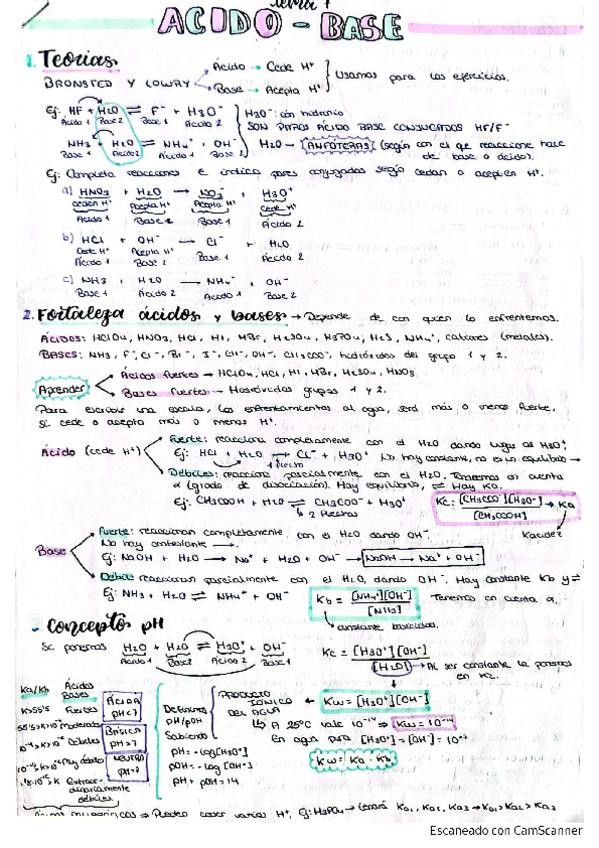 Tema 7
ÁCIDO - BASE
1. Teorías
BRONSTED Y LOWRY
Ácido → Cede H⁺
Base → Acepta H⁺
Usamos para los ejercicios.
Ej: HF + H2O ⇌ F⁻ + H3O⁻
Ácido 1 Base 2 Base 1 Ácido 2
H3O⁻: ión hidronio
SON PARES ÁCIDO BASE CONJUGADOS HF/F⁻
NH3 + H2O ⇌ NH4⁺ + OH⁻
Base 1 Ácido 2 Ácido 1 Base 2
H2O → ANFÓTERAS (según con el que reaccione hace de base o ácido).
Ej: Completa reacciones e indica pares conjugados según cedan o acepten H⁺.
a) HNO3 + H2O → NO3⁻ + H3O⁺
Ceden H⁺ Acepta H⁺ Acepta H⁺ Cede H⁺
Ácido 1 Base 2 Base 1 Ácido 2
b) HCl + OH⁻ → Cl⁻ + H2O
Cede H⁺ Acepta H⁺
Ácido 1 Base 2 Base 1 Ácido 2
c) NH3 + H2O → NH4⁻ + OH⁻
Base 1 Ácido 2 Ácido 1 Base 2
2. Fortaleza ácidos y bases → Depende de con quien lo enfrentemos.
ÁCIDOS: HClO4, HNO3, HCl, HI, HBr, H2SO4, H3PO4, H2S, NH4⁺, cationes (metales).
BASES: NH3, F⁻, Cl⁻, Br⁻, I⁻, CN⁻, OH⁻, CH3COO⁻, hidróxidos del grupo 1 y 2.
Aprender
Ácidos fuertes → HClO4, HCl, HI, HBr, H2SO4, HNO3
Bases fuertes → Hidróxidos grupos 1 y 2.
Para escribir una escala, los enfrentamientos al agua, será más o menos fuerte,
si cede o acepta más o menos H⁺.
Ácido (cede H⁺)
Fuerte: reacciona completamente con el H2O dando lugar as H3O⁺
Ej: HCl + H2O → Cl⁻ + H3O⁺ No hay constante, no es un equilibrio →
Débiles: reacciona parcialmente con el H2O. Tenemos en cuenta
α (grado de disociación). Hay equilibrio, ⇌ Hay Ka.
Ej: CH3COOH + H2O ⇌ CH3COO⁻ + H3O⁺
Kc: [CH3COO⁻][H3O⁻] / [CH3COOH] → Ka
Kacidez
Base
Fuerte: reaccionan completamente con el H2O dando OH⁻.
No hay constante →.
Ej: NaOH + H2O → Na⁺ + H2O + OH⁻ → NaOH → Na⁺ + OH⁻
Débil: reaccionan parcialmente con el H2O, dando OH⁻. Hay constante Kb y ⇌
Ej: NH3 + H2O ⇌ NH4⁺ + OH⁻
Kb = [NH4⁺][OH⁻] / [NH3]
Tenemos en cuenta α,
constante basicidad.
Concepto pH
Si ponemos H2O + H2O ⇌ H3O⁺ + OH⁻
Ácido 1 Base 2 Ácido 2 Base 1
Kc = [H3O⁺][OH⁻] / [H2O]
Al ser constante la ponemos en Kc.
Ka/Kb Ácidos Bases
Fuertes
moderados
Débiles
Muy débil
ÁCIDA pH<7
BÁSICA pH>7
NEUTRO
Definimos pH/pOH
Sabiendo
pH = -log[H3O⁺]
pOH = -log[OH⁻]
pH + pOH = 14
PRODUCTO IÓNICO DEL AGUA
Kw = [H3O⁺][OH⁻]
A 25ºC vale 10⁻¹⁴ ⇒ Kw = 10⁻¹⁴
En agua pura [H3O⁺] = [OH⁻] = 10⁻⁷
Kw = Ka · Kb
⇒ Pueden ceder varios H⁺, Ej: H3PO4 → tendrá Ka1, Ka2, Ka3 → Ka1 > Ka2 > Ka3
Escaneado con CamScanner